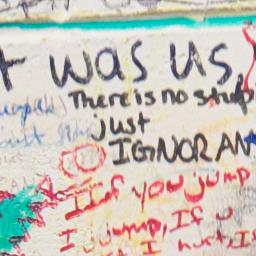 t was us,
There is no stup
just
IGNORAN
If you jump
I jump, If u
I hurt, I